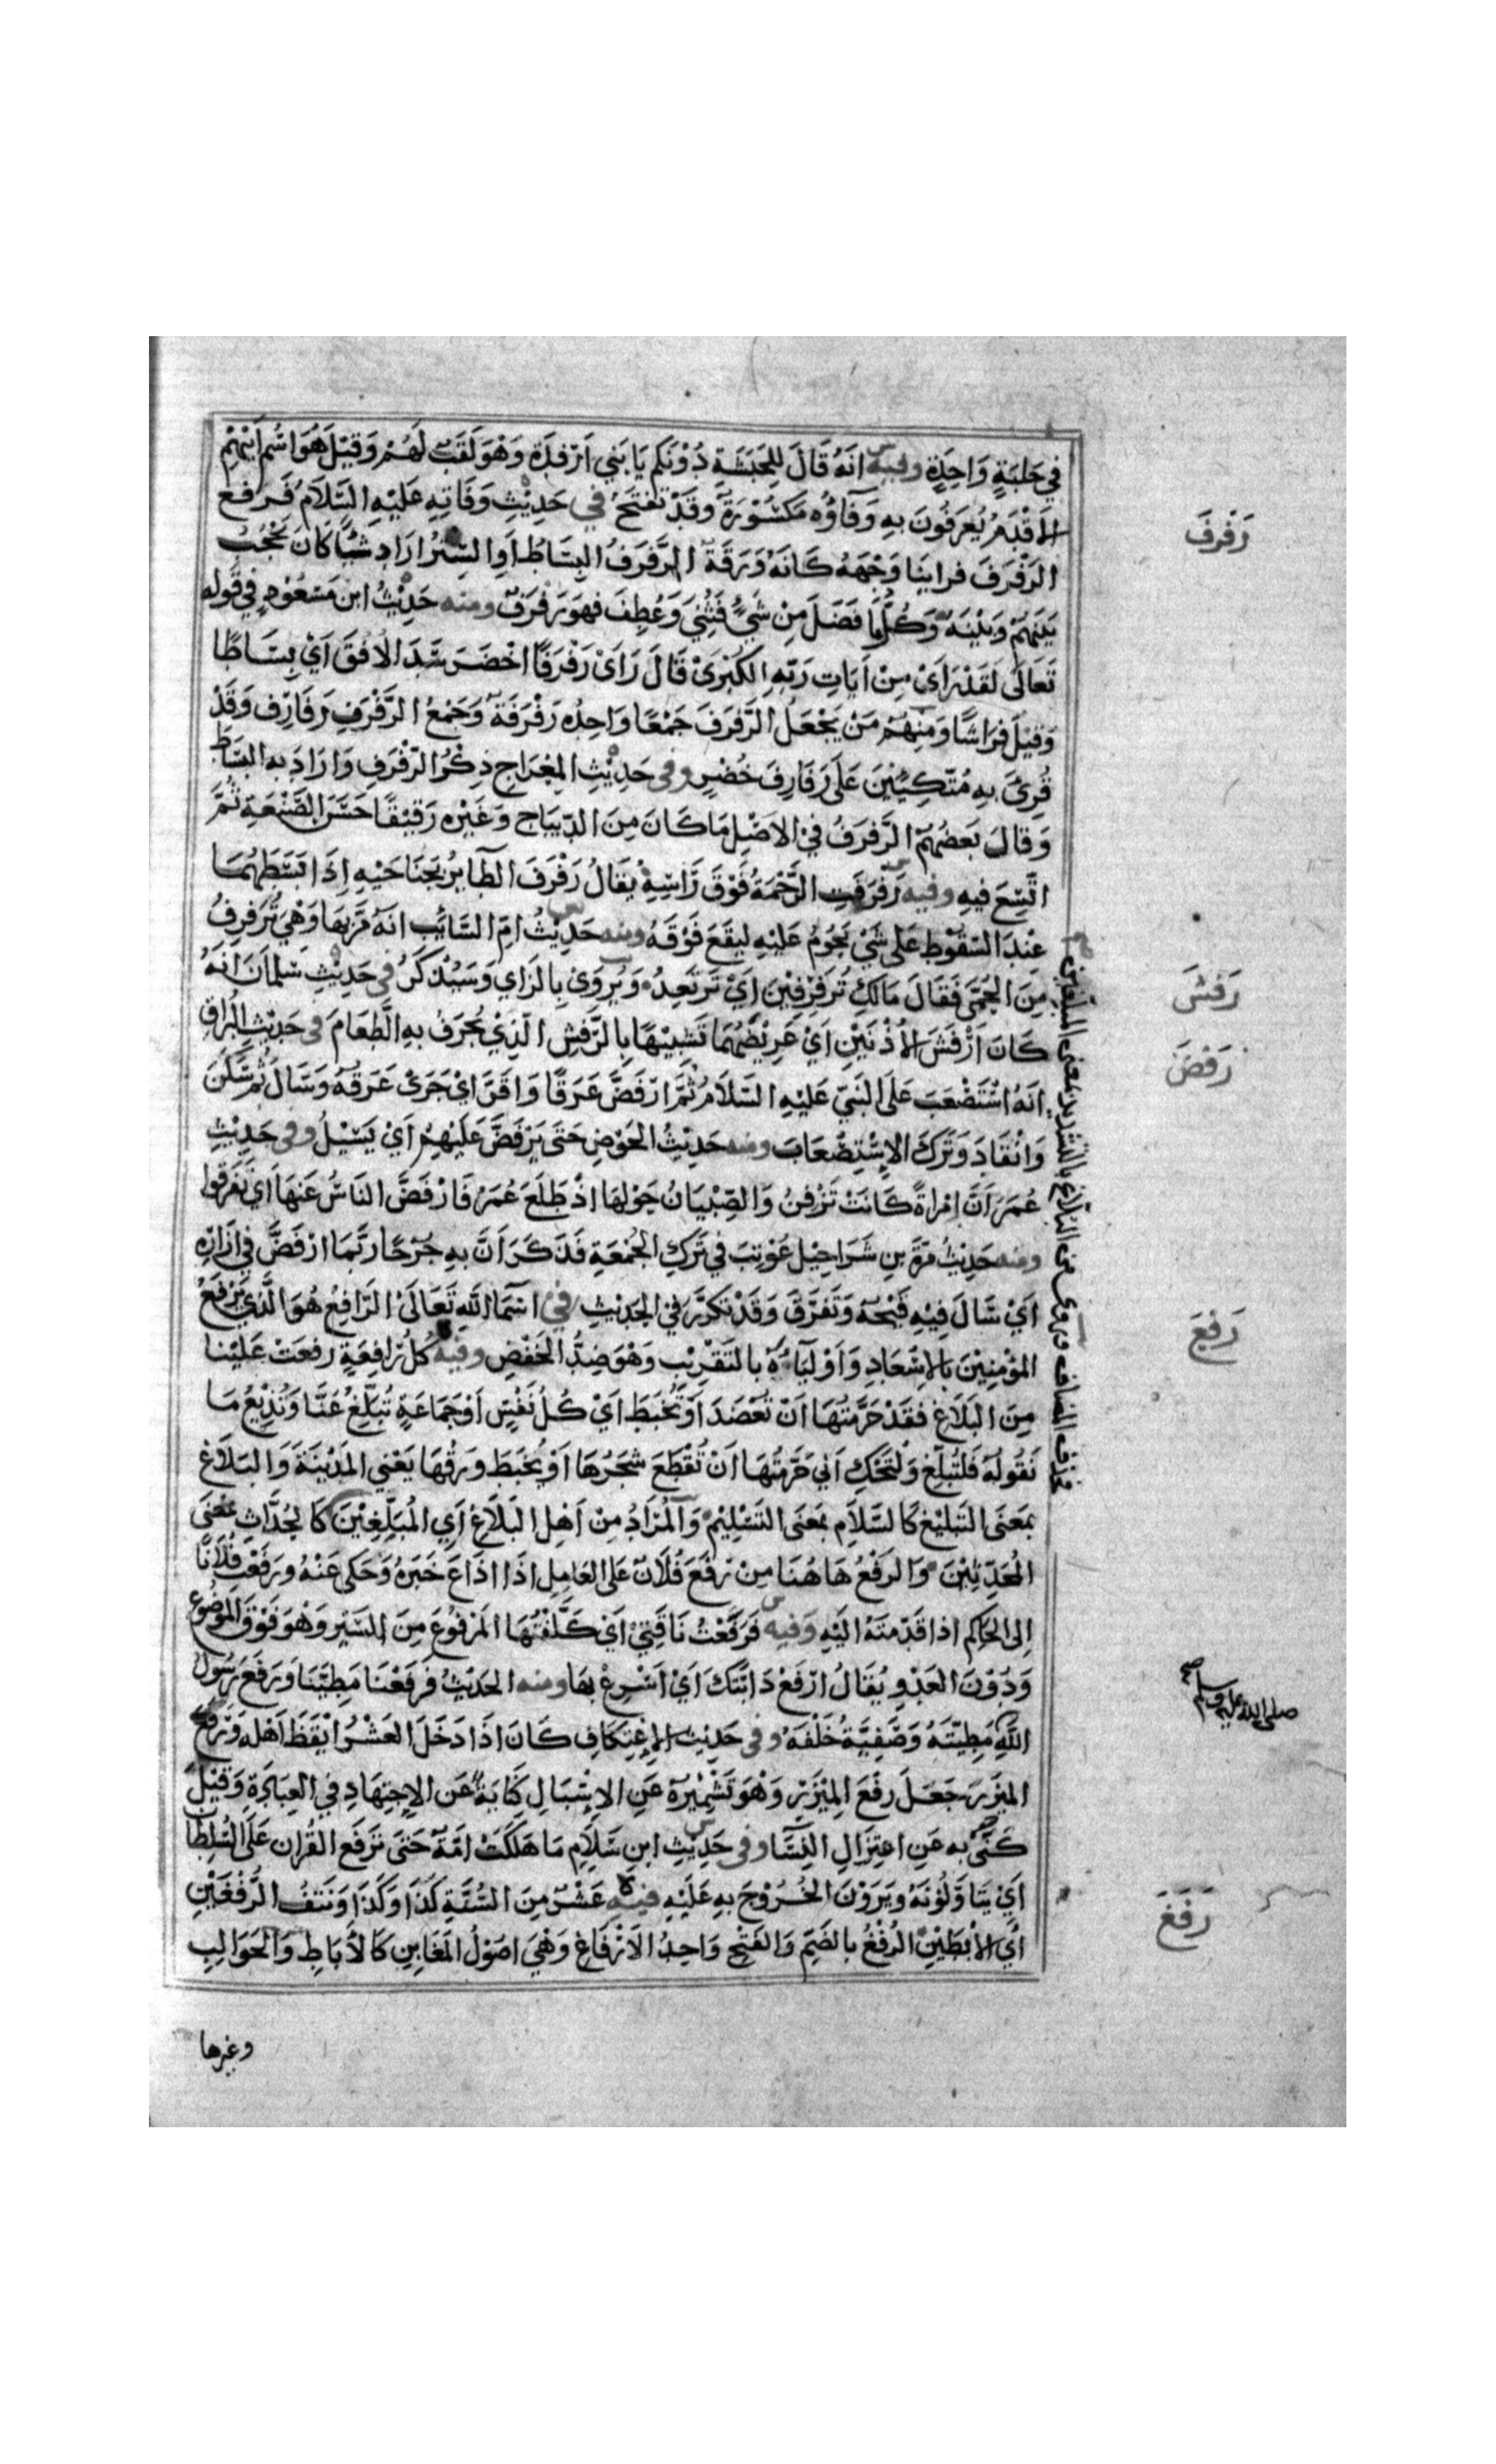 في حلبة واحدة وفيه انه قال للحبشة دونكم يا بني ارفدة وهو لقب لهم وقيل هو اسم ابيهم
الاقدم يعرفون به وفاؤه مكسورة وقد تفتح في حديث وفاته عليه السلام فرفع
رفرف
الرفرف فراينا وجهه كانه ورقة الرفرف البساط او الستر اراد شيا كان يحجب
بينهم وبينه وكلما فضل من شيء فثني وعطف فهو رفرف ومنه حديث ابن مسعود في قوله
تعالى لقد راى من ايات ربه الكبرى قال راى رفرفا اخضر سد الافق اي بساطا
وقيل فراشا ومنهم من يجعل الرفرف جمعا واحده رفرفة وجمع الرفرف رفارف وقد
قرئ به متكئين على رفارف خضر وفي حديث المعراج ذكر الرفرف واراد به البساط
وقال بعضهم الرفرف في الاصل ما كان من الديباج وغيره رقيقا حسن الصنعة ثم
اتسع فيه وفيه رفرفت الرحمة فوق راسه يقال رفرف الطاير بجناحيه اذا بسطهما
عند السقوط على شي يحوم عليه ليقع فوقه ومنه حديث ام السائب انه مر بها وهي ترفرف
من الحمى فقال مالك ترفرفين اي ترتعد ويروى بالزاي وسيذكر في حديث سلمان انه
رفش
كان ارفش الاذنين اي عريضهما تشبيها بالرفش الذي يجرف به الطعام في حديث البراق
رفض
انه استصعب على النبي عليه السلام ثم ارفض عرقا واقر اي جرى عرقه وسال ثم سكن
وانقاد وترك الاستصعاب ومنه حديث الحوض حتى يرفض عليهم اي يسيل وفي حديث
عمر ان امراة كانت تزفن والصبيان حولها اذ طلع عمر فارفض الناس عنها اي تفرقوا
ومنه حديث مرة بن شراحيل عوتب في ترك الجمعة فذكر ان به جرحا ربما ارفض في ازاره
اي سال فيه قيحه وتفرق وقد تكرر في الحديث في اسما الله تعالى الرافع هو الذي يرفع
رفع
المؤمنين بالاسعاد واولياءه بالتقريب وهو ضد الخفض وفيه كل رافعة رفعت علينا
من البلاغ فقد حرمتها ان تعضد او تخبط اي كل نفس او جماعة تبلغ عنا وتذيع ما
نقوله فلتبلغ ولتحك اني حرمتها ان تقطع شجرها او يخبط ورقها يعني المدينة والبلاغ
بمعنى التبليغ كالسلام بمعنى التسليم والمراد من اهل البلاغ اي المبلغين كالحداث بمعنى
المحدثين والرفع هاهنا من رفع فلان على العامل اذا اذاع خبره وحكى عنه ورفعت فلانا
الى الحاكم اذا قدمته اليه وفيه فرفعت ناقتي اي كلفتها المرفوع من السير وهو فوق الموضوع
ودون العدو يقال ارفع دابتك اي اسرع بها ومنه الحديث فرفعنا مطينا ورفع رسول
صلى الله عليه وسلم صح
الله مطيته وصفية خلفه وفي حديث الاعتكاف كان اذا دخل العشر ايقظ اهله ورفع
الميزر جعل رفع الميزر وهو تشميره عن الاسبال كناية عن الاجتهاد في العبادة وقيل
كنى به عن اعتزال النسا وفي حديث ابن سلام ما هلكت امة حتى ترفع القران على السلطان
اي يتاولونه ويرون الخروج به عليه فيه عشر من السنة كذا وكذا ونتف الرفغين
رفغ
اي الابطين الرفغ بالضم والفتح واحد الارفاغ وهي اصول المغابن كالاباط والحوالب
وغيرها
بحذف المضاف ويروى من البلاغ بالتشديد بمعنى المبلغين